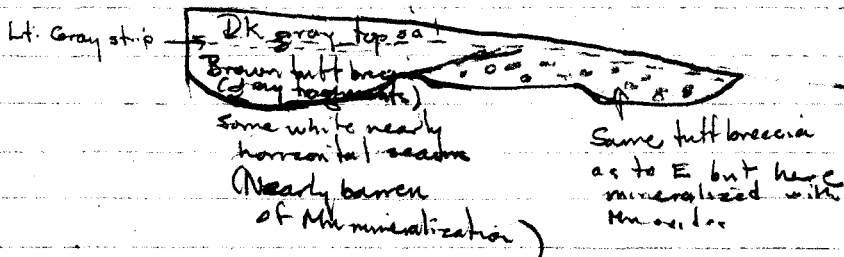 Lt. Gray strip
Dk gray top soil
Brown tuff breccia
(gray fragments)
Some white nearly
horizontal seams
(Nearly barren
of Mn mineralization)
Same tuff breccia
as to E but here
mineralized with
Mn oxides